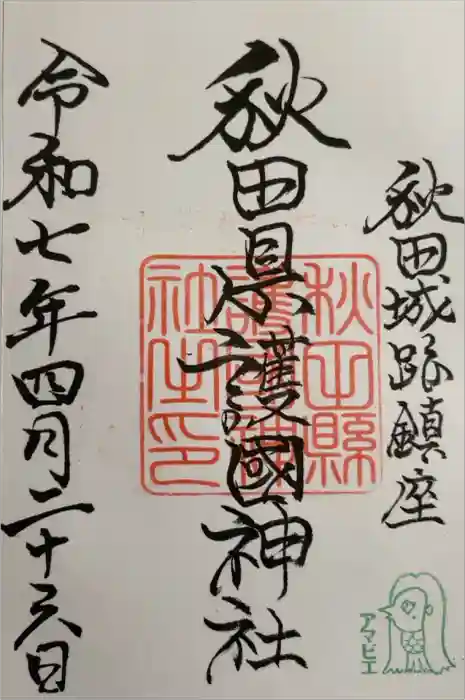 秋田城跡鎮座
秋田県護國神社
秋田縣
護國神
社之印
令和七年四月二十六日
アマビエ